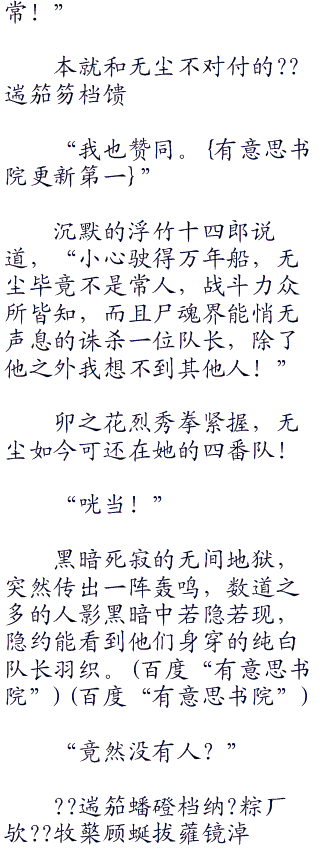 常！”
本就和无尘不对付的??
遄笳笏档馈
“我也赞同。{有意思书
院更新第一}”
沉默的浮竹十四郎说
道，“小心驶得万年船，无
尘毕竟不是常人，战斗力众
所皆知，而且尸魂界能悄无
声息的诛杀一位队长，除了
他之外我想不到其他人！”
卯之花烈秀拳紧握，无
尘如今可还在她的四番队！
“咣当！”
黑暗死寂的无间地狱，
突然传出一阵轰鸣，数道之
多的人影黑暗中若隐若现，
隐约能看到他们身穿的纯白
队长羽织。(百度“有意思书
院”)(百度“有意思书院”)
“竟然没有人？”
??遄笳蟠磴档纳?粽厂
欤??牧蕖顾蜒拔蕹镜淖